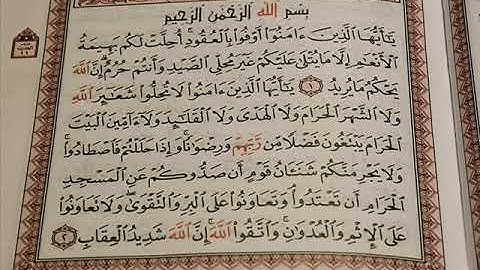 بِسْمِ اللَّهِ الرَّحْمَٰنِ الرَّحِيمِ
يَٰٓأَيُّهَا الَّذِينَ ءَامَنُوٓا۟ أَوْفُوا۟ بِالْعُقُودِ ۚ أُحِلَّتْ لَكُم بَهِيمَةُ
الْأَنْعَٰمِ إِلَّا مَا يُتْلَىٰ عَلَيْكُمْ غَيْرَ مُحِلِّى الصَّيْدِ وَأَنتُمْ حُرُمٌ ۗ إِنَّ اللَّهَ
يَحْكُمُ مَا يُرِيدُ ١ يَٰٓأَيُّهَا الَّذِينَ ءَامَنُوا۟ لَا تُحِلُّوا۟ شَعَٰٓئِرَ اللَّهِ
وَلَا الشَّهْرَ الْحَرَامَ وَلَا الْهَدْىَ وَلَا الْقَلَٰٓئِدَ وَلَآ ءَآمِّينَ الْبَيْتَ
الْحَرَامَ يَبْتَغُونَ فَضْلًا مِّن رَّبِّهِمْ وَرِضْوَٰنًا ۚ وَإِذَا حَلَلْتُمْ فَاصْطَادُوا۟ ۚ
وَلَا يَجْرِمَنَّكُمْ شَنَـَٔانُ قَوْمٍ أَن صَدُّوكُمْ عَنِ الْمَسْجِدِ
الْحَرَامِ أَن تَعْتَدُوا۟ ۘ وَتَعَاوَنُوا۟ عَلَى الْبِرِّ وَالتَّقْوَىٰ ۖ وَلَا تَعَاوَنُوا۟
عَلَى الْإِثْمِ وَالْعُدْوَٰنِ ۚ وَاتَّقُوا۟ اللَّهَ ۖ إِنَّ اللَّهَ شَدِيدُ الْعِقَابِ ٢